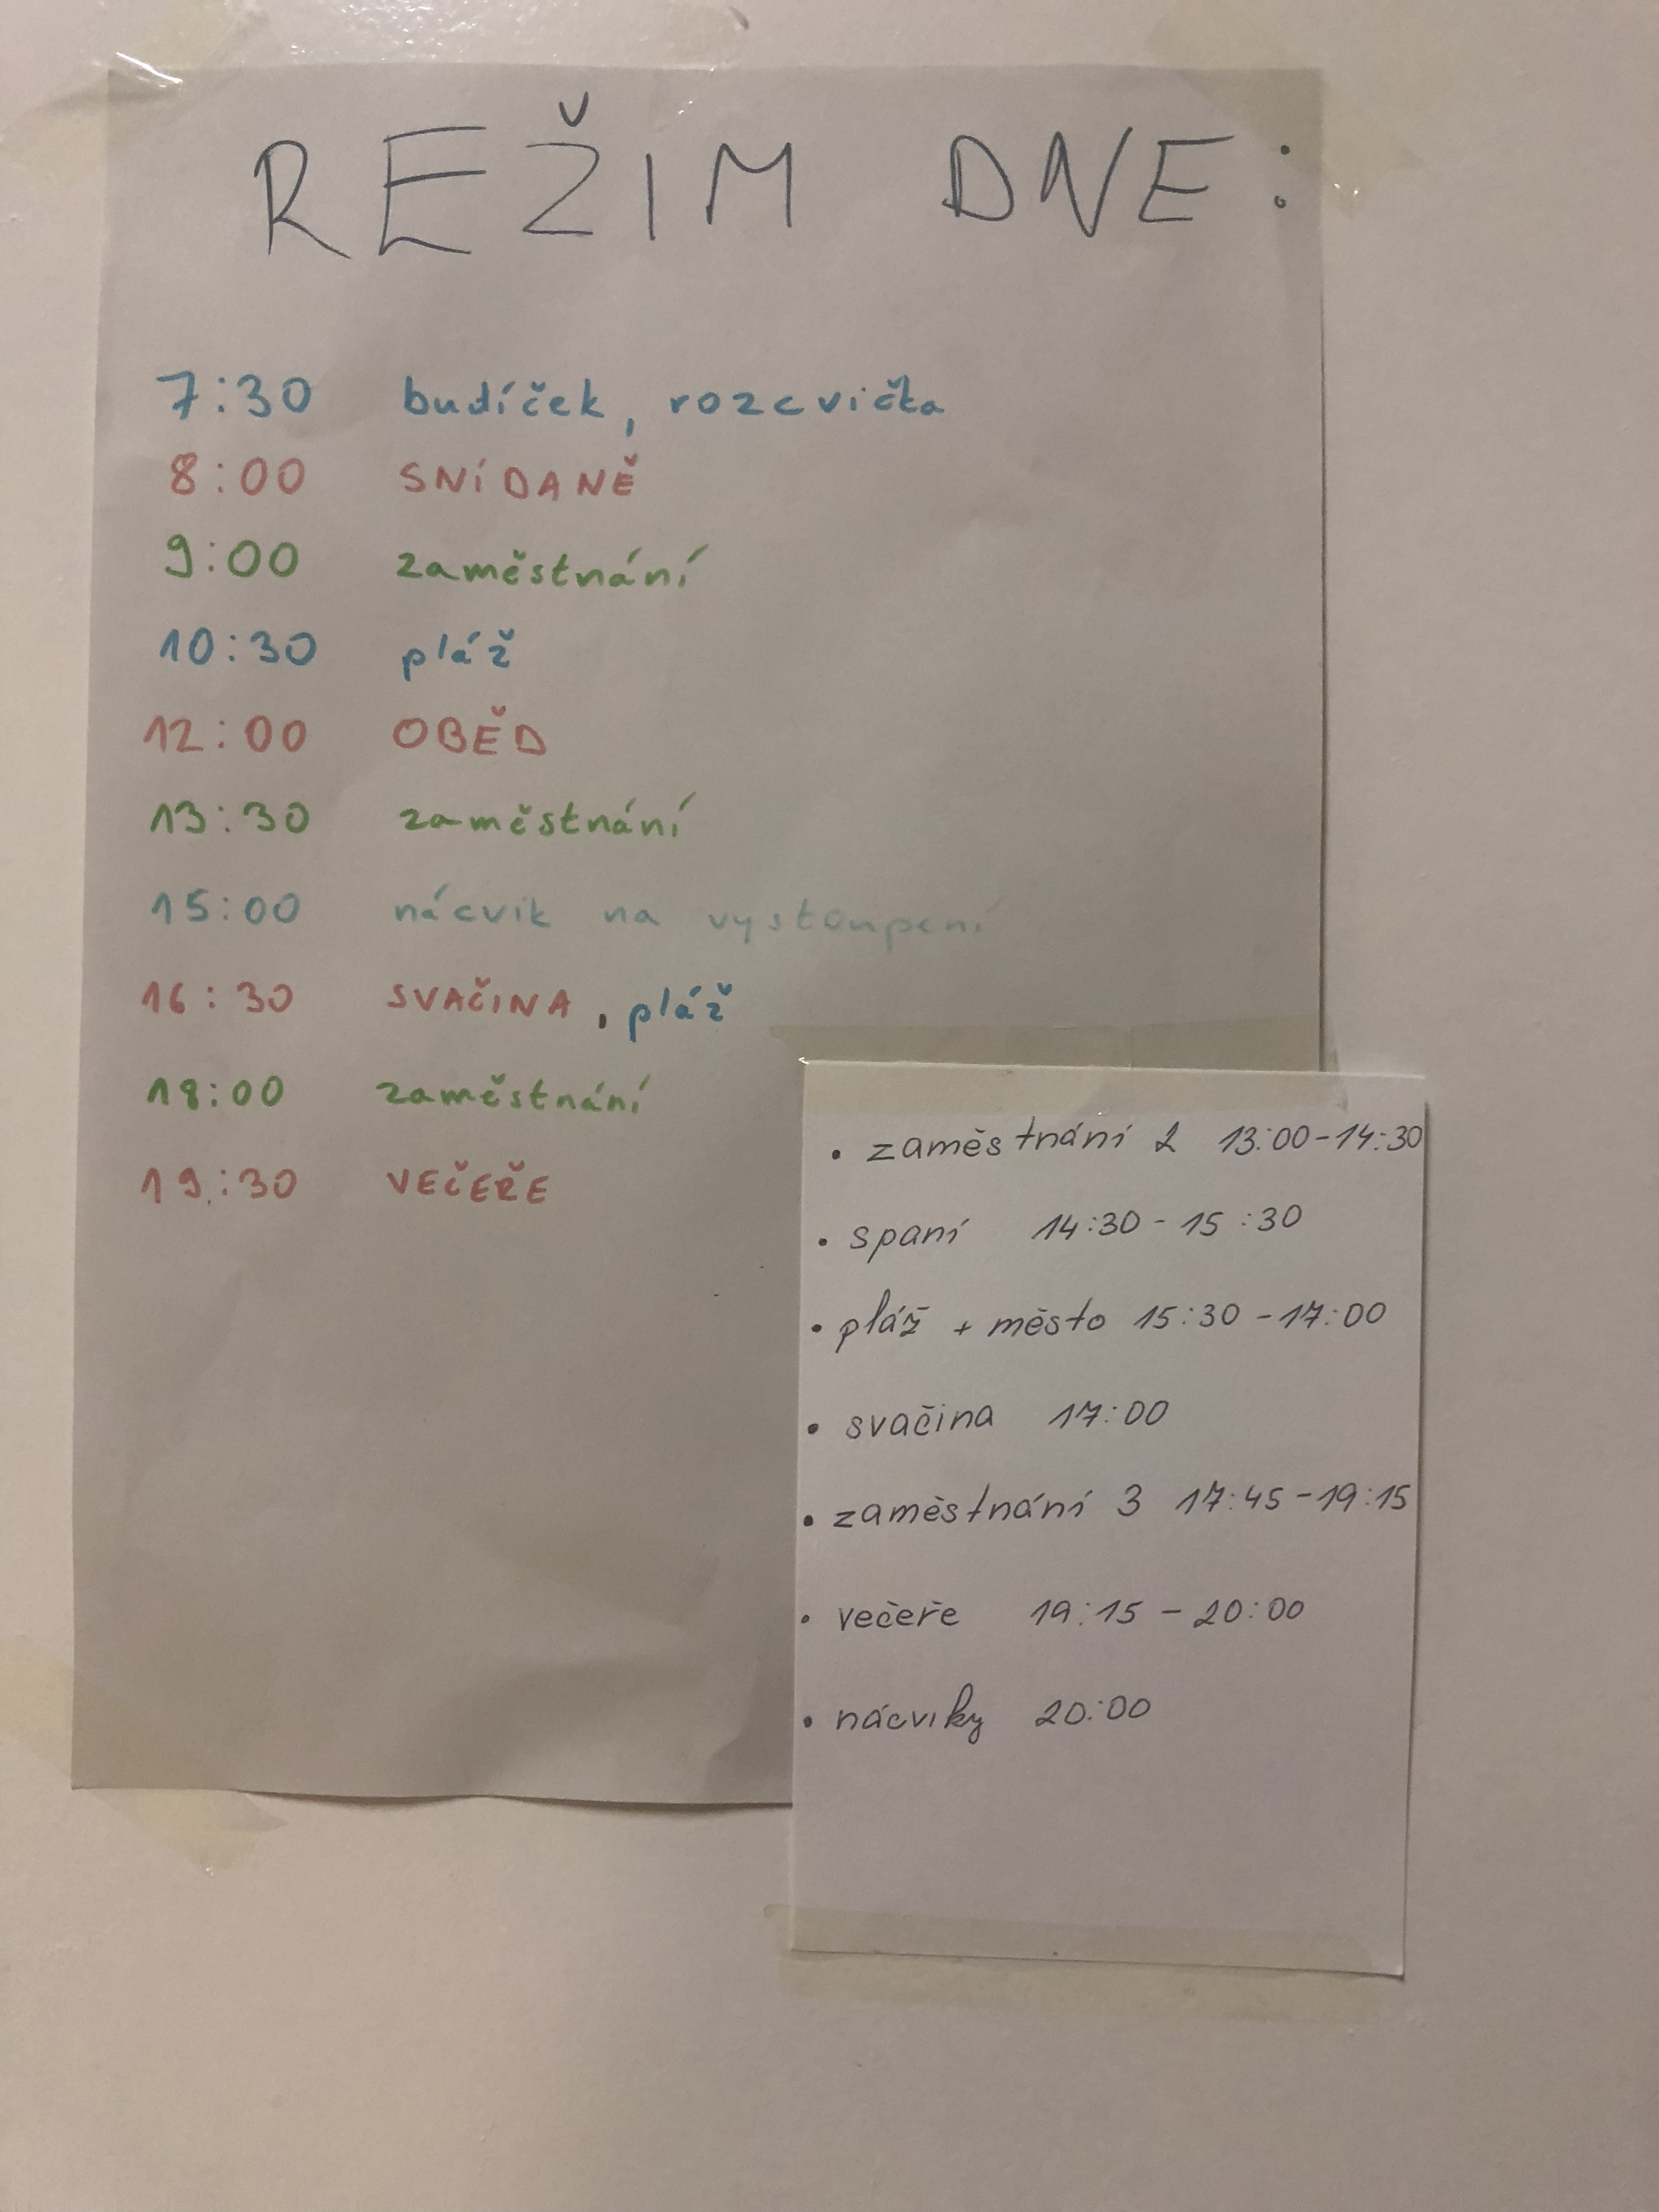 REŽIM DNE:
7:30 budíček, rozcvička
8:00 SNÍDANĚ
9:00 zaměstnání
10:30 pláž
12:00 OBĚD
13:30 zaměstnání
15:00 nácvik na vystoupení
16:30 SVAČINA, pláž
18:00 zaměstnání
19:30 VEČEŘE
• zaměstnání 2 13:00-14:30
• spaní 14:30-15:30
• pláž + město 15:30-17:00
• svačina 17:00
• zaměstnání 3 17:45-19:15
• večeře 19:15-20:00
• nácviky 20:00